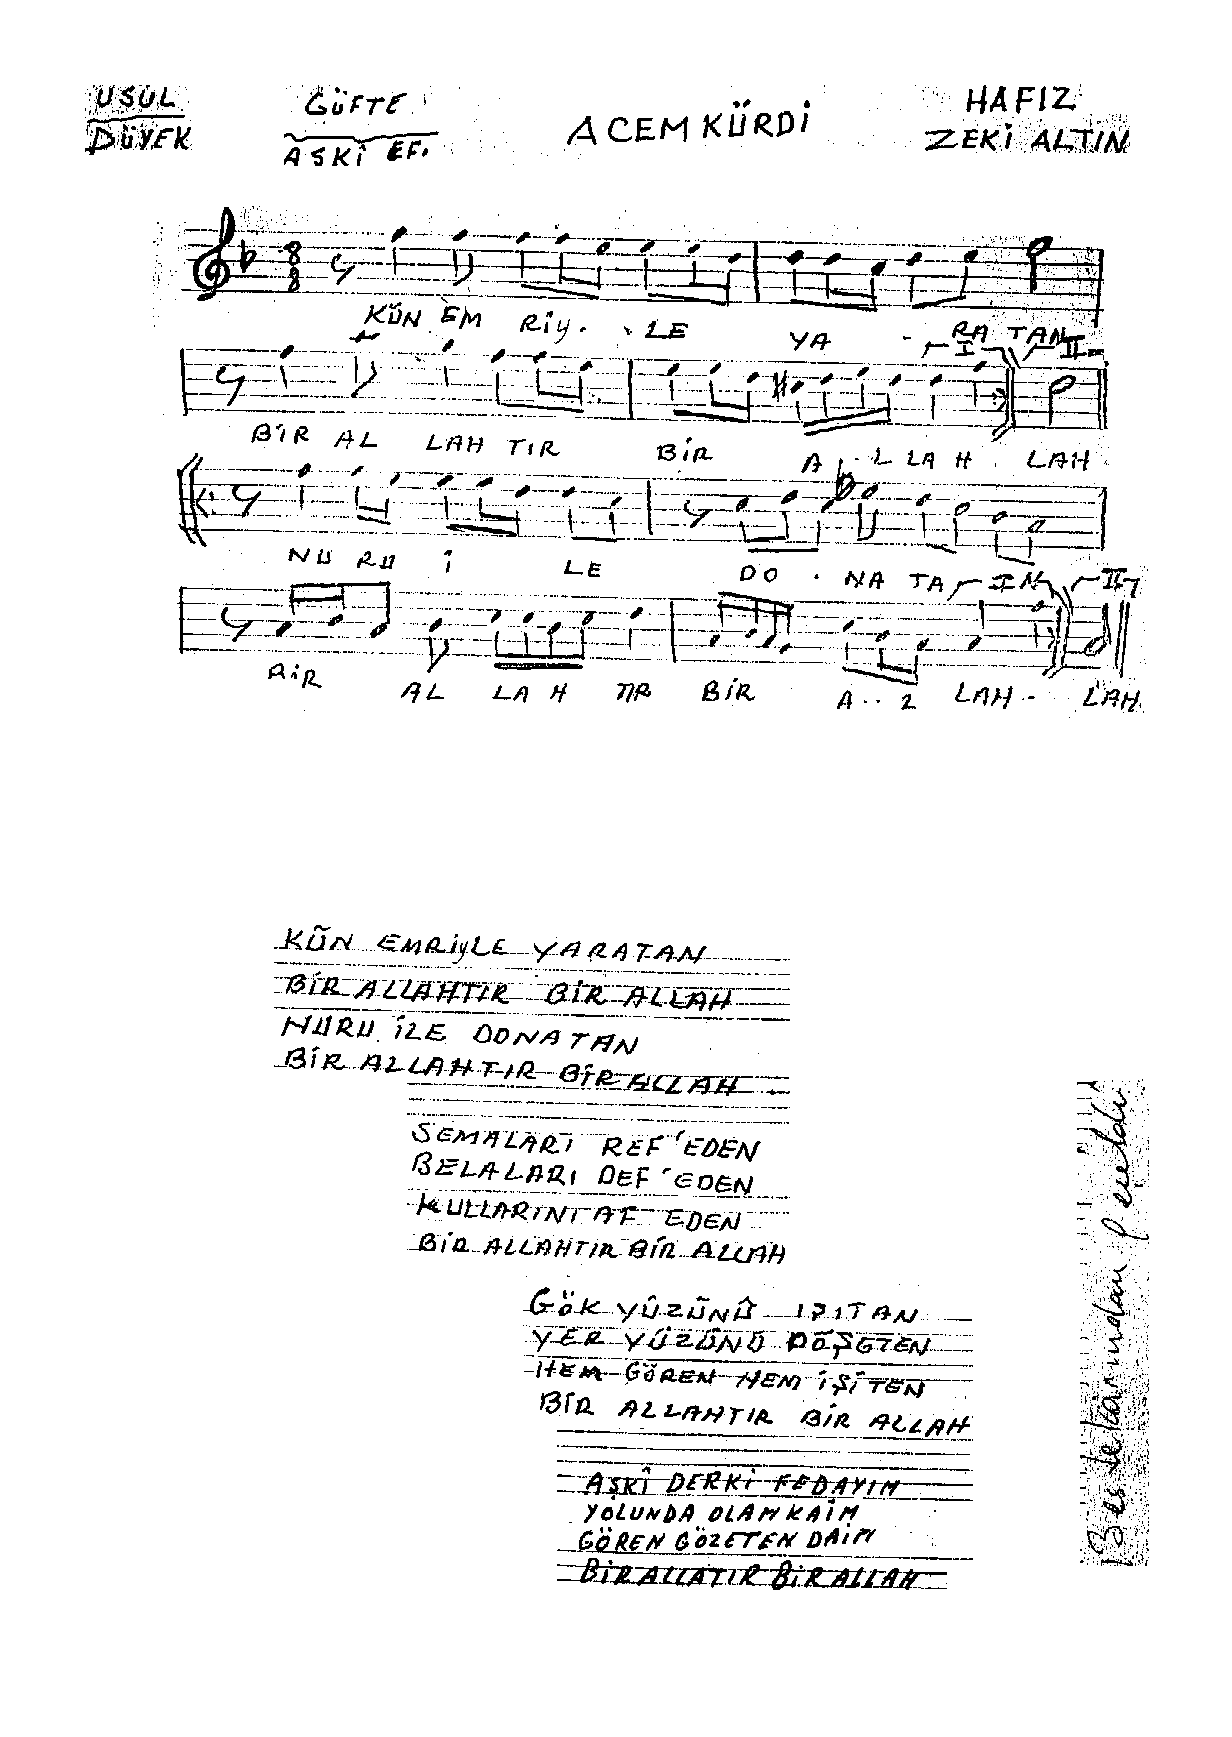 USÛL
DÜYEK
GÜFTE
AŞKİ EF.
ACEMKÜRDİ
HAFIZ
ZEKİ ALTIN
8
8
KÜN EM RİY. . LE YA - RA TAN
I II
BİR AL LAH TIR BİR A . L LAH . LAH
NU RU İ LE DO . NA TA N
I II
BİR AL LA H TIR BİR A . . L LAH - LAH
KÜN EMRİYLE YARATAN
BİR ALLAHTIR BİR ALLAH
NURU İLE DONATAN
BİR ALLAHTIR BİR ALLAH
SEMALARI REF'EDEN
BELALARI DEF'EDEN
KULLARINI AF EDEN
BİR ALLAHTIR BİR ALLAH
GÖK YÜZÜNÜ IŞITAN
YER YÜZÜNÜ DÖŞETEN
HEM GÖREN HEM İŞİTEN
BİR ALLAHTIR BİR ALLAH
AŞKÎ DERKİ FEDAYIM
YOLUNDA OLAM KAİM
GÖREN GÖZETEN DAİM
BİR ALLATIR BİR ALLAH
Bestekârından